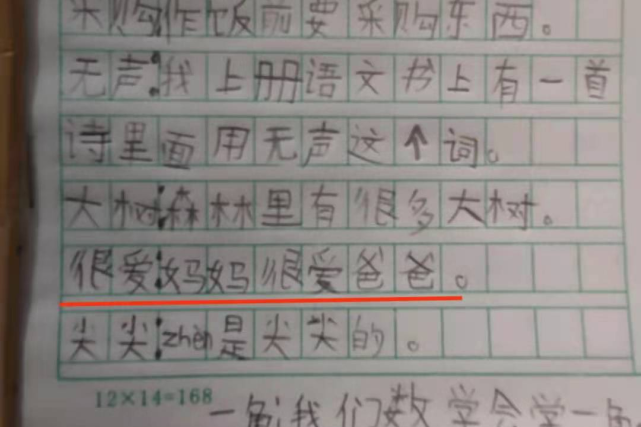 采购:作饭前要采购东西。
无声:我上册语文书上有一首
诗里面用无声这个词。
大树:森林里有很多大树。
很爱:妈妈很爱爸爸。
尖尖:zhèn是尖尖的。
12×14=168
一色:我们数学会学一色